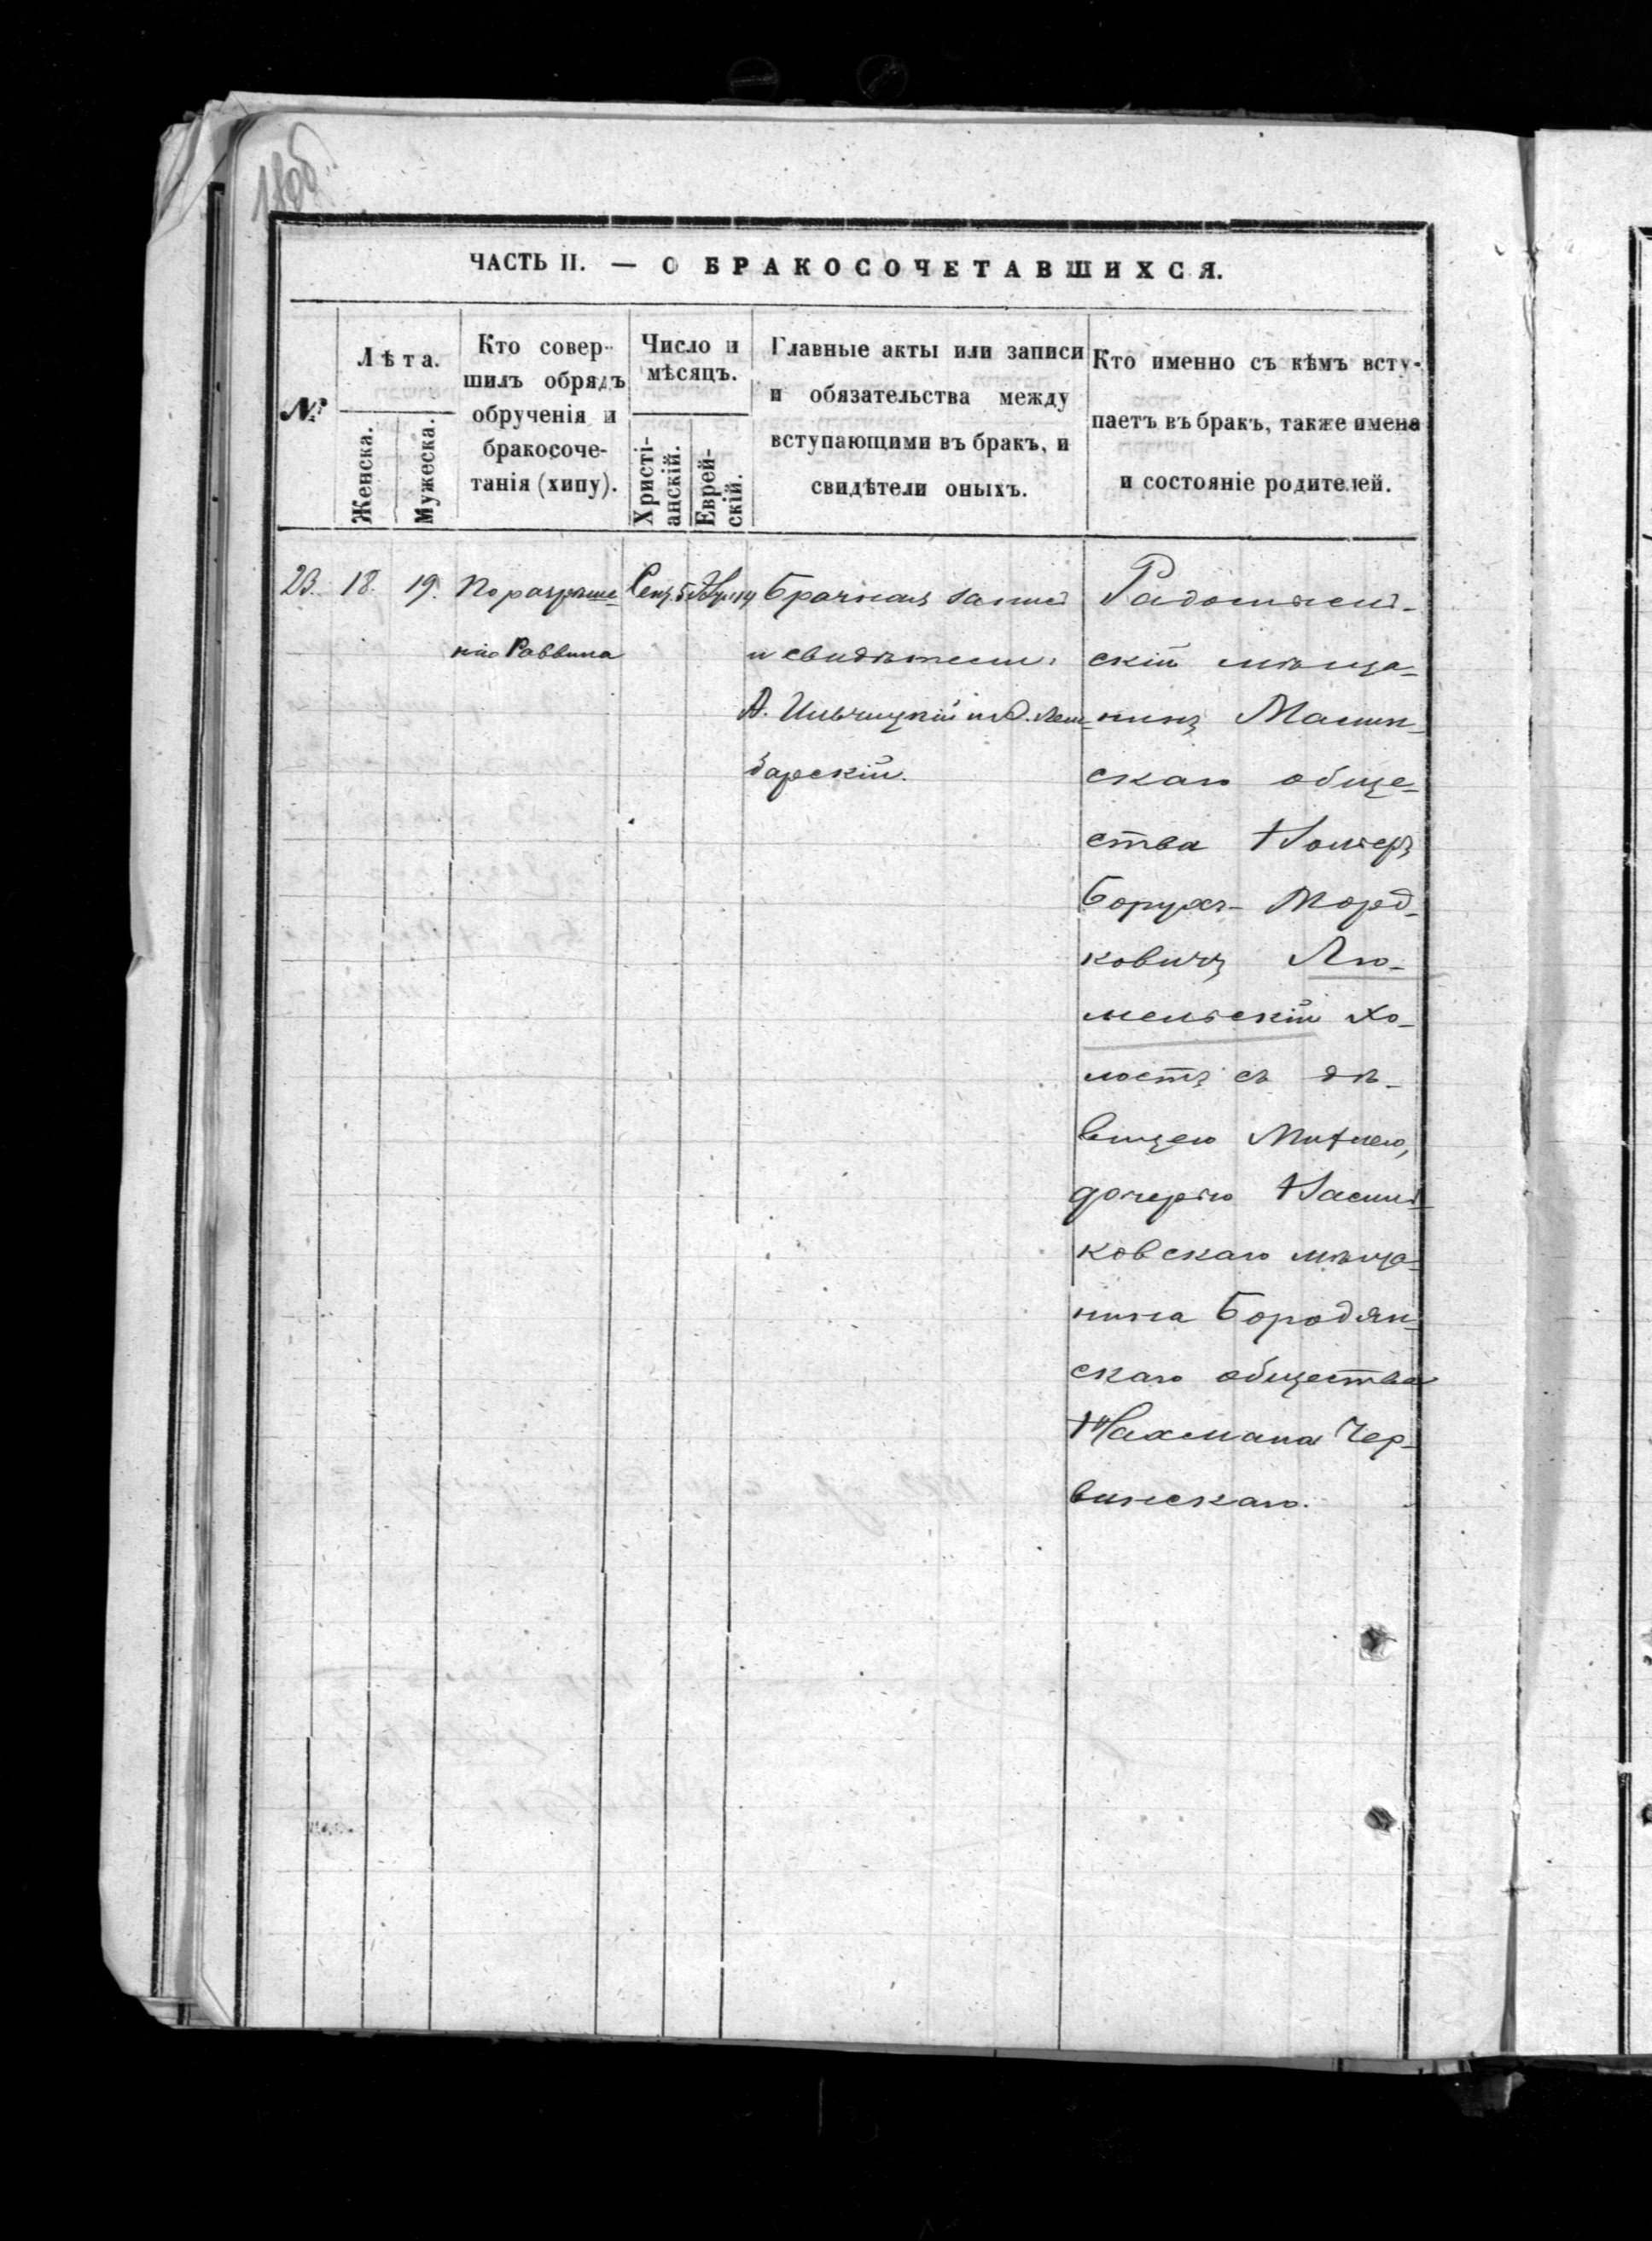 180б
ЧАСТЬ II. — О БРАКОСОЧЕТАВШИХСЯ.
№
Лѣта.
Женска.
Мужеска.
Кто совер-
шилъ обрядъ
обрученія и
бракосоче-
танія (хипу).
Число и
мѣсяцъ.
Христі-
анскій.
Еврей-
скій.
Главные акты или записи
и обязательства между
вступающими въ бракъ, и
свидѣтели оныхъ.
Кто именно съ кѣмъ всту-
паетъ въ бракъ, также имена
и состояніе родителей.
23. 18. 19. По разрѣше-
нію Раввина
Сен. 5
Брачная запись
и свидѣтели:
А. Ильчицкій и
дарскій.
Радомысль-
скій мѣща-
нинъ Малин-
скаго обще-
ства
БорухъМорд-
ковичъ Лю-
мельскій хо-
лостъ съ дѣ-
вицею
дочерью Василь-
ковскаго мѣща-
нина Бородян-
скаго общества
Нахмана Чер-
винскаго.